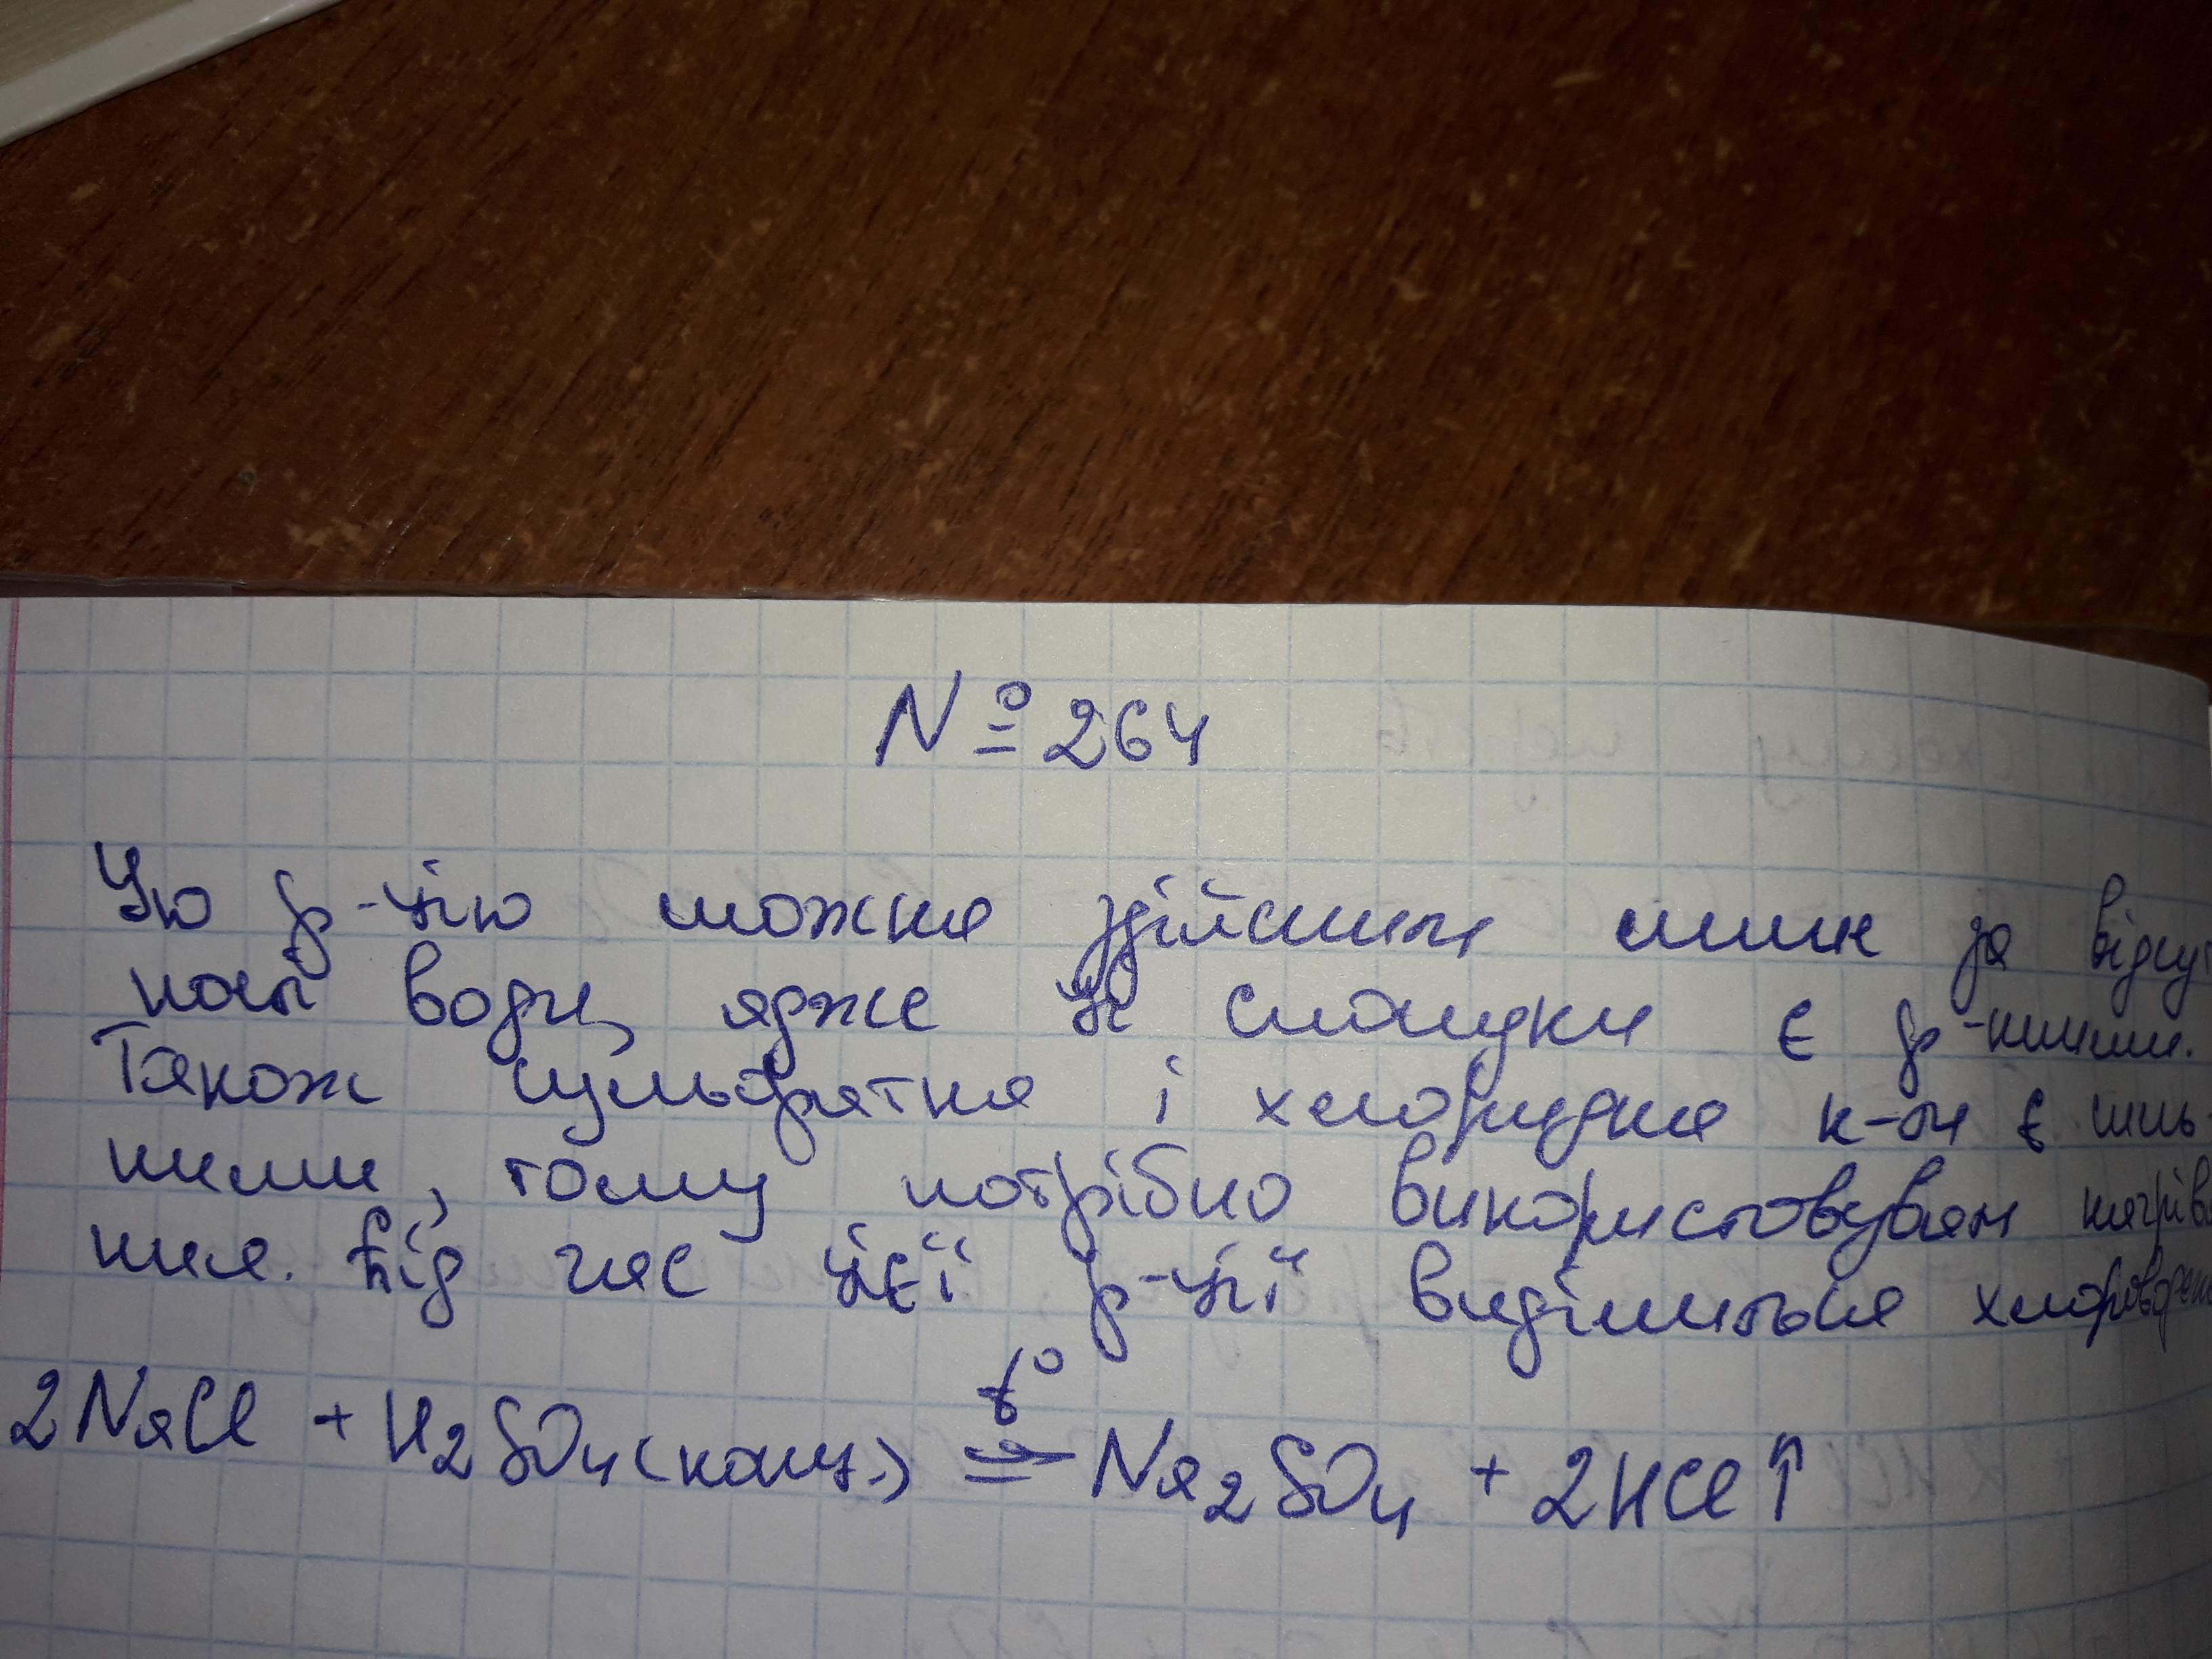 № 264
Цю р-цію можна здійснити лише за відсут
ності води, адже ці сполуки є р-ними.
Також сульфатна і хлоридна к-ти є силь
ними, тому потрібно використовувати нагріва
ння. Під час цієї р-ції виділиться хлороводень
2NaCl + H2SO4(конц.) t° → Na2SO4 + 2HCl↑